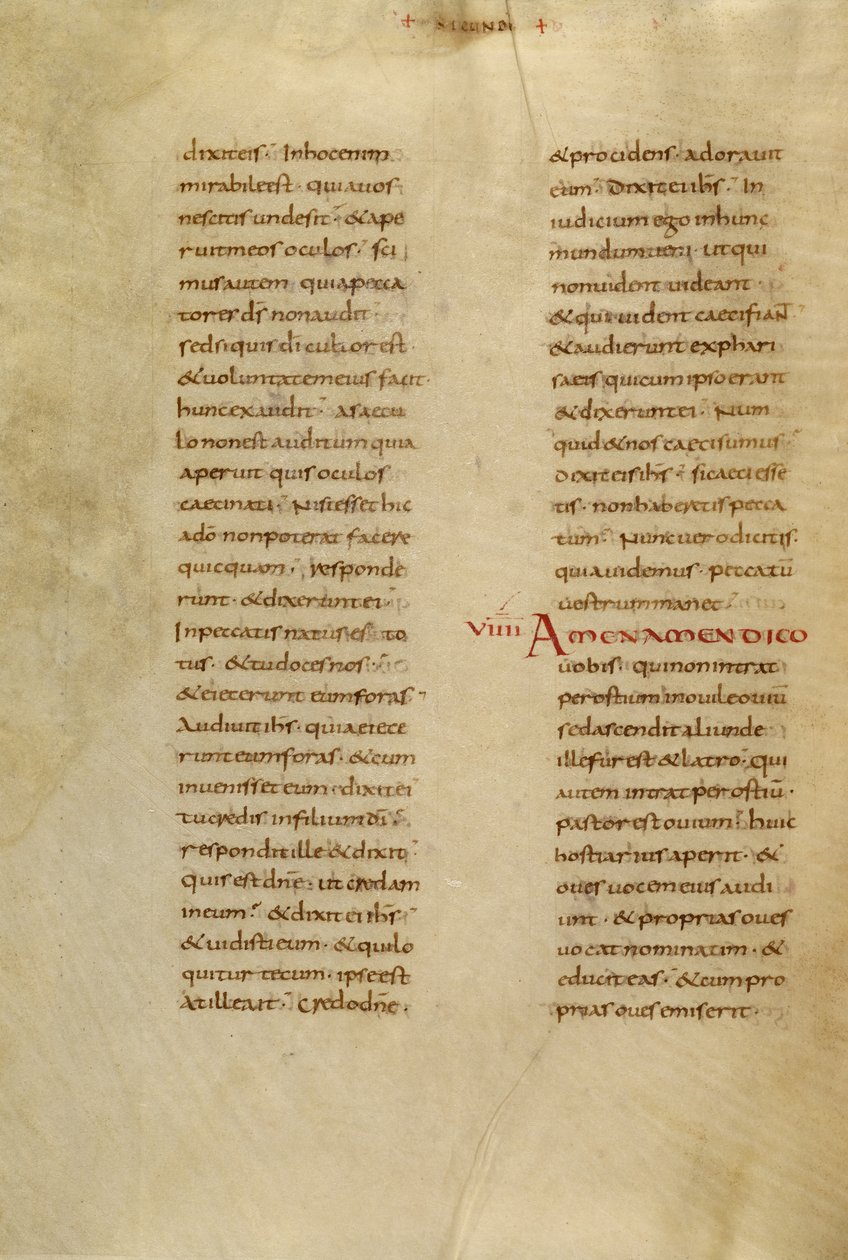 + SECUNDU +
dixiteis· Inhocenim
mirabileest· quiauos
nescitis undesit· &ape
ruitmeos oculos· sci
musautem quiapecca
tores d̄s nonaudit·
sedsiquis d̄i cultor est·
&uoluntatemeius facit·
hunc exaudit· asaecu
lo nonest auditum quia
aperuit quis oculos
caecinati· Nisiesset hic
adō nonpoterat facere
quicquam· responde
runt· &dixeruntei·
Inpeccatis natus es· to
tus· &tudocesnos·
&eiecerunt eumforas·
Audiuit ih̄s· quiaeiece
runt eumforas· &cum
inuenisset eum· dixitei
tucredis infilium d̄i·
respondit ille &dixit
Quis est dn̄e· ut credam
ineum· &dixit ei ih̄s
&uidisti eum· &quilo
quitur tecum· ipseest
Atilleait· Credodn̄e·
&procidens· adorauit
eum· Dixit ei ih̄s· In
iudicium ego inhunc
mundumueni· utqui
nonuident uideant·
&qui uident caecifiant
&audierunt exphari
saeis quicum ipso erant
&dixeruntei· Num
quid &nos caecisumus·
dixit eis ih̄s· sicaeciesse
tis· nonhaberetis pecca
tum· Nuncuero dicitis·
quiauidemus· peccatū
uestrummanet·
VIIII AMENAMENDICO
uobis· quinonintrat
perostiuminouileouiū
sedascendit aliunde
illefur est &latro· qui
autem intrat perostiū·
pastor est ouium· huic
hostiarius aperit· &
oues uocem eius audi
unt· &proprias oues
uocat nominatim· &
educit eas· &cum pro
prias oues emiserit·